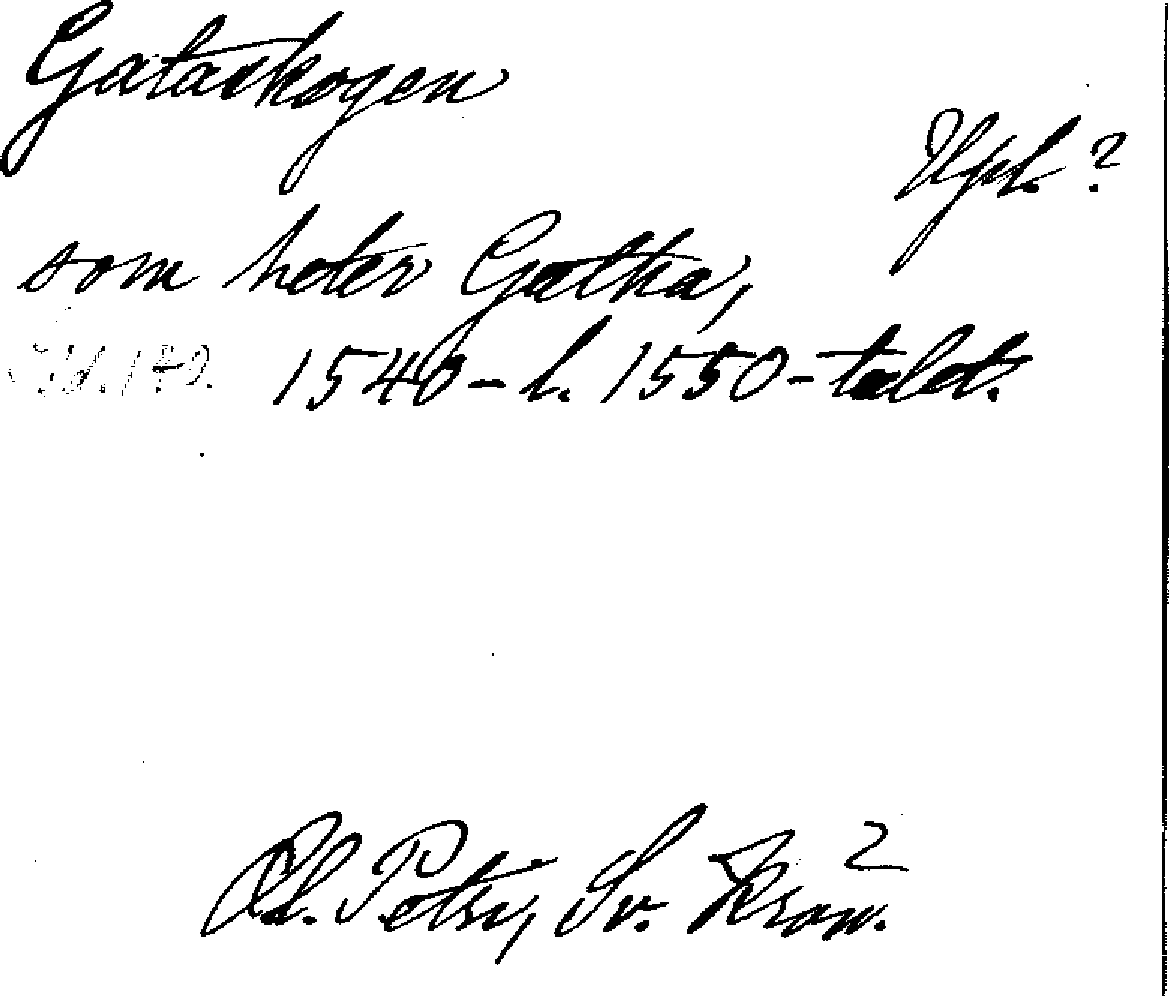 Gataskogen
Upl. ?
som heter Gatka,
1540- l. 1550-talet.
Ol. Petri, Sv. Krön. 2